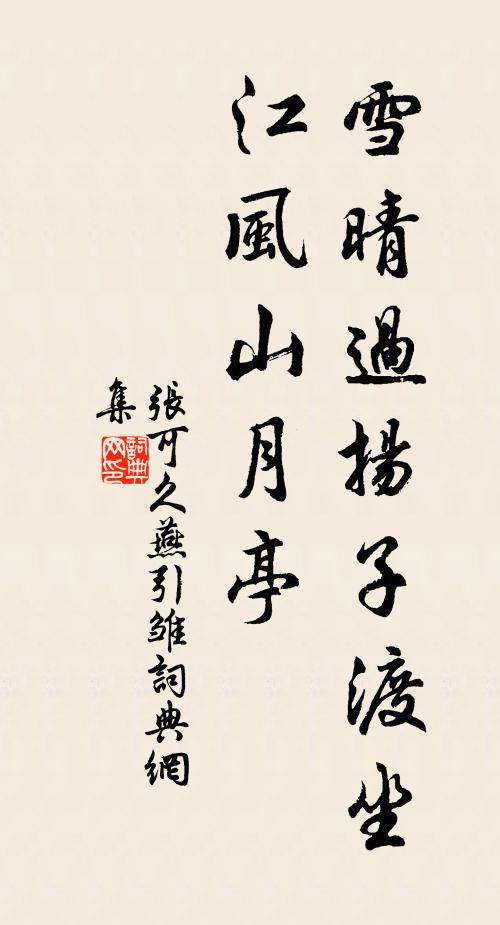 雪晴過揚子渡坐
江風山月亭
張可久燕引雏詞典網
集
詞典网印